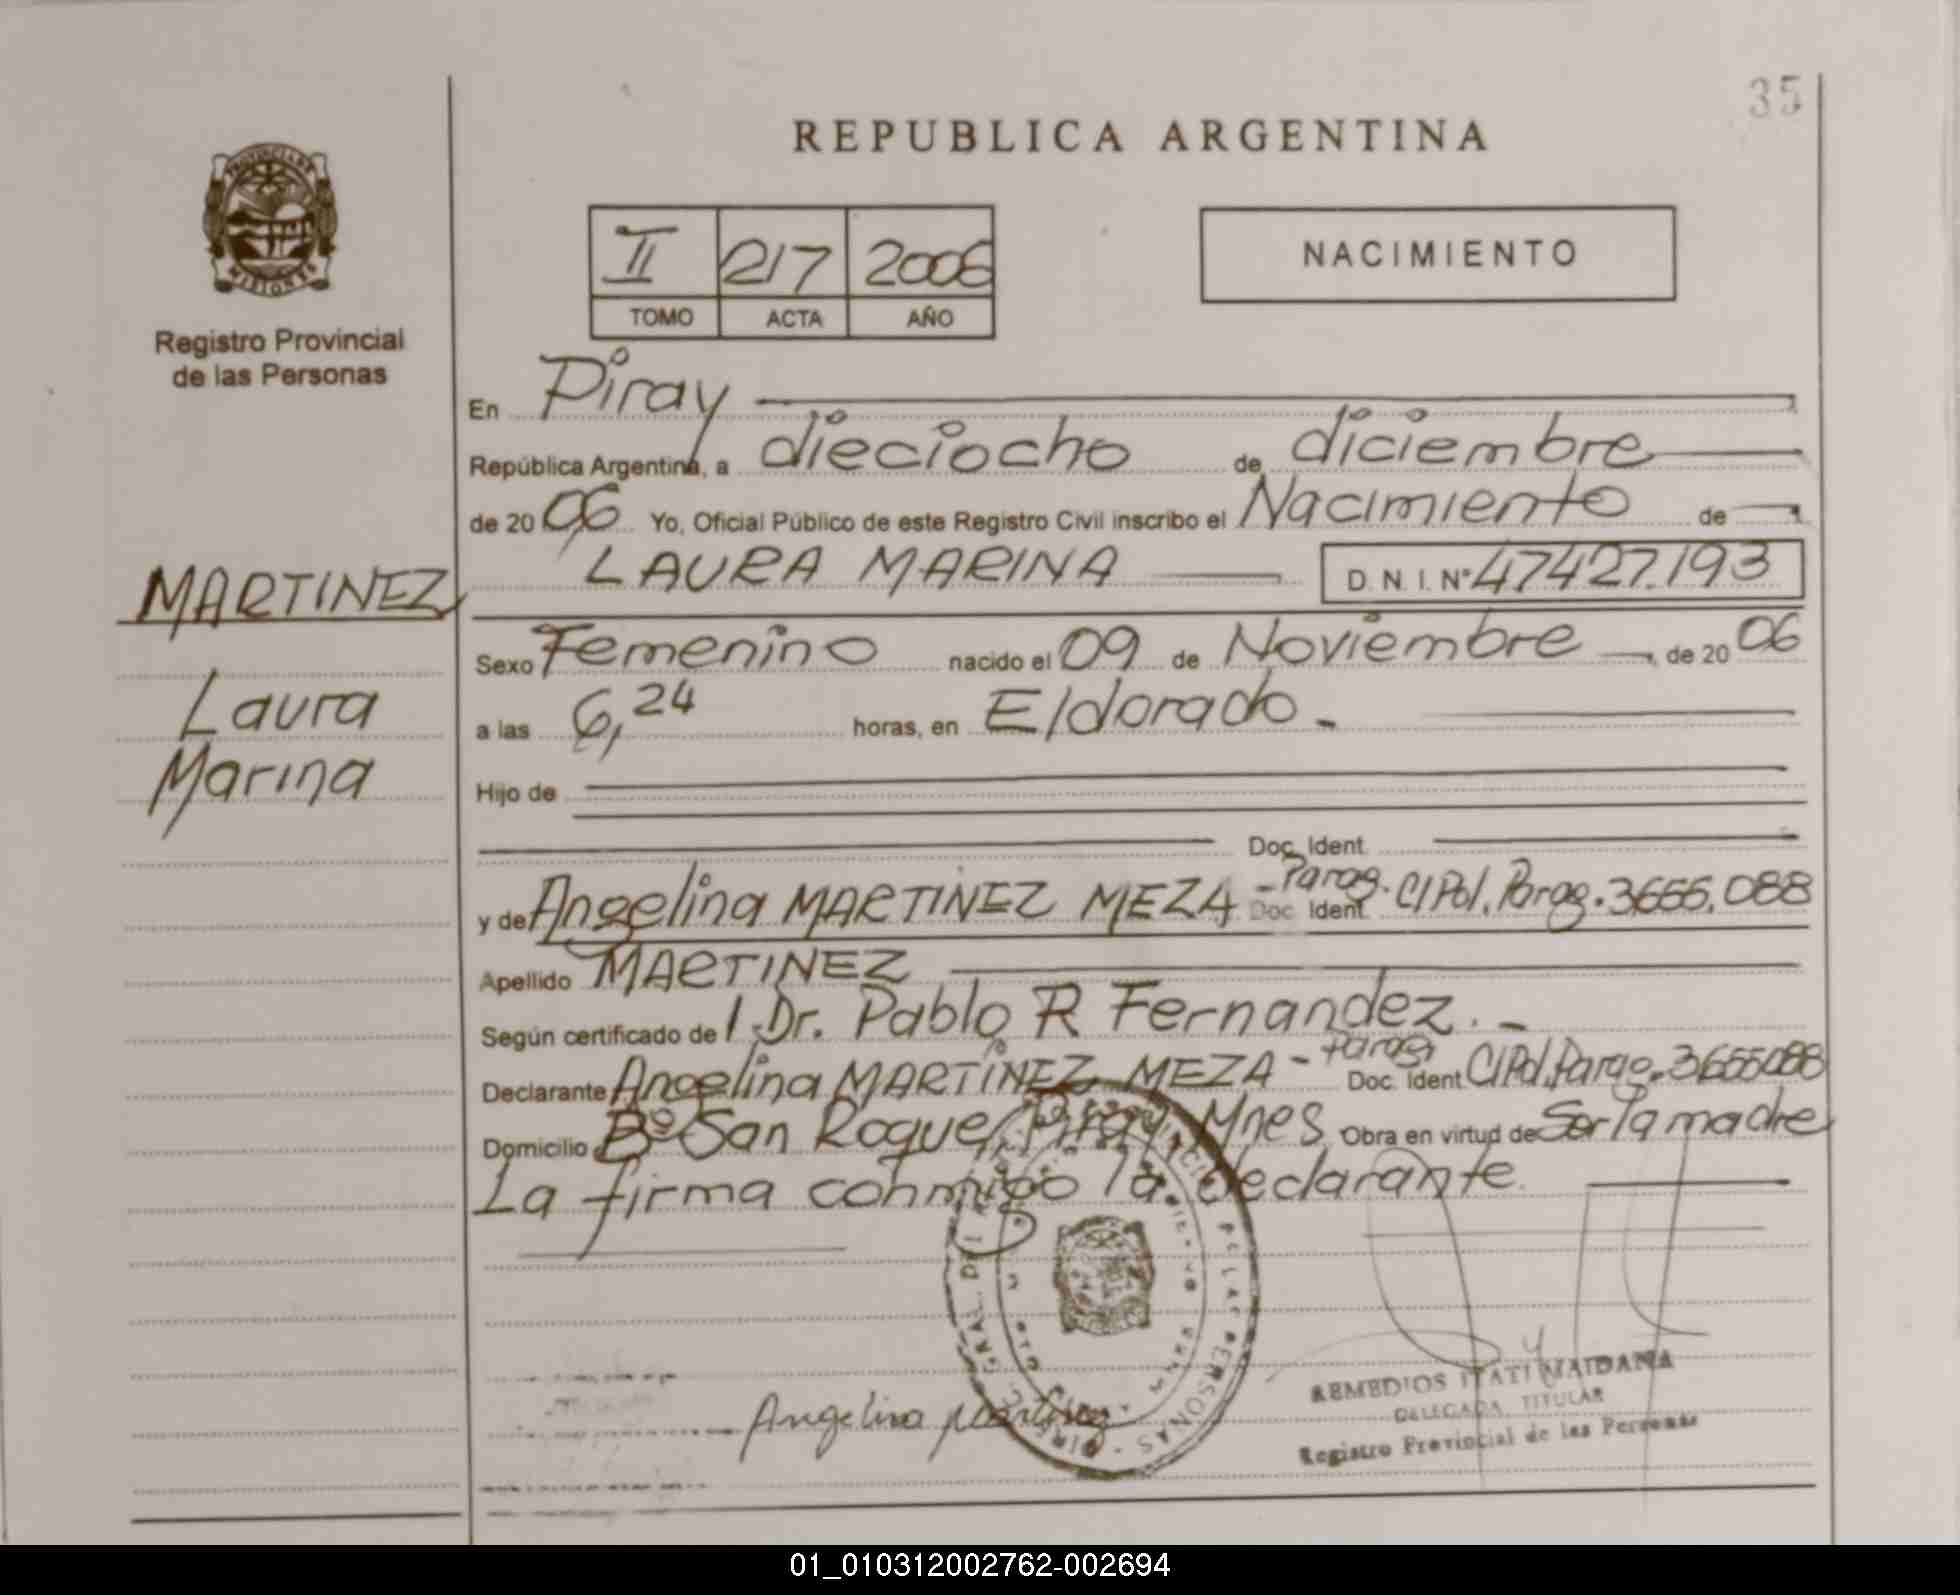 35
REPUBLICA ARGENTINA
PROVINCIA DE
MISIONES
Registro Provincial
de las Personas
II 217 2006
TOMO ACTA AÑO
NACIMIENTO
En Piray
República Argentina, a dieciocho de diciembre
de 20 06 Yo, Oficial Público de este Registro Civil inscribo el Nacimiento de
LAURA MARINA D. N. I. Nº 47427.193
MARTINEZ
Laura
Marina
Sexo Femenino nacido el 09 de Noviembre de 20 06
a las 6,24 horas, en Eldorado.-
Hijo de
Doc. Ident.
y de Angelina MARTINEZ MEZA - Parag. Doc. Ident. CI Pol. Parag. 3655.088
Apellido MARTINEZ
Según certificado de l Dr. Pablo R Fernandez.-
Declarante Angelina MARTINEZ MEZA - Parag. Doc. Ident. CI Pol. Parag. 3655088
Domicilio Bº San Roque, Piray, Mnes Obra en virtud de Ser la madre
La firma conmigo la declarante.
Angelina Martinez
REMEDIOS ITATI MAIDANA
DELEGADA TITULAR
Registro Provincial de las Personas
01_010312002762-002694